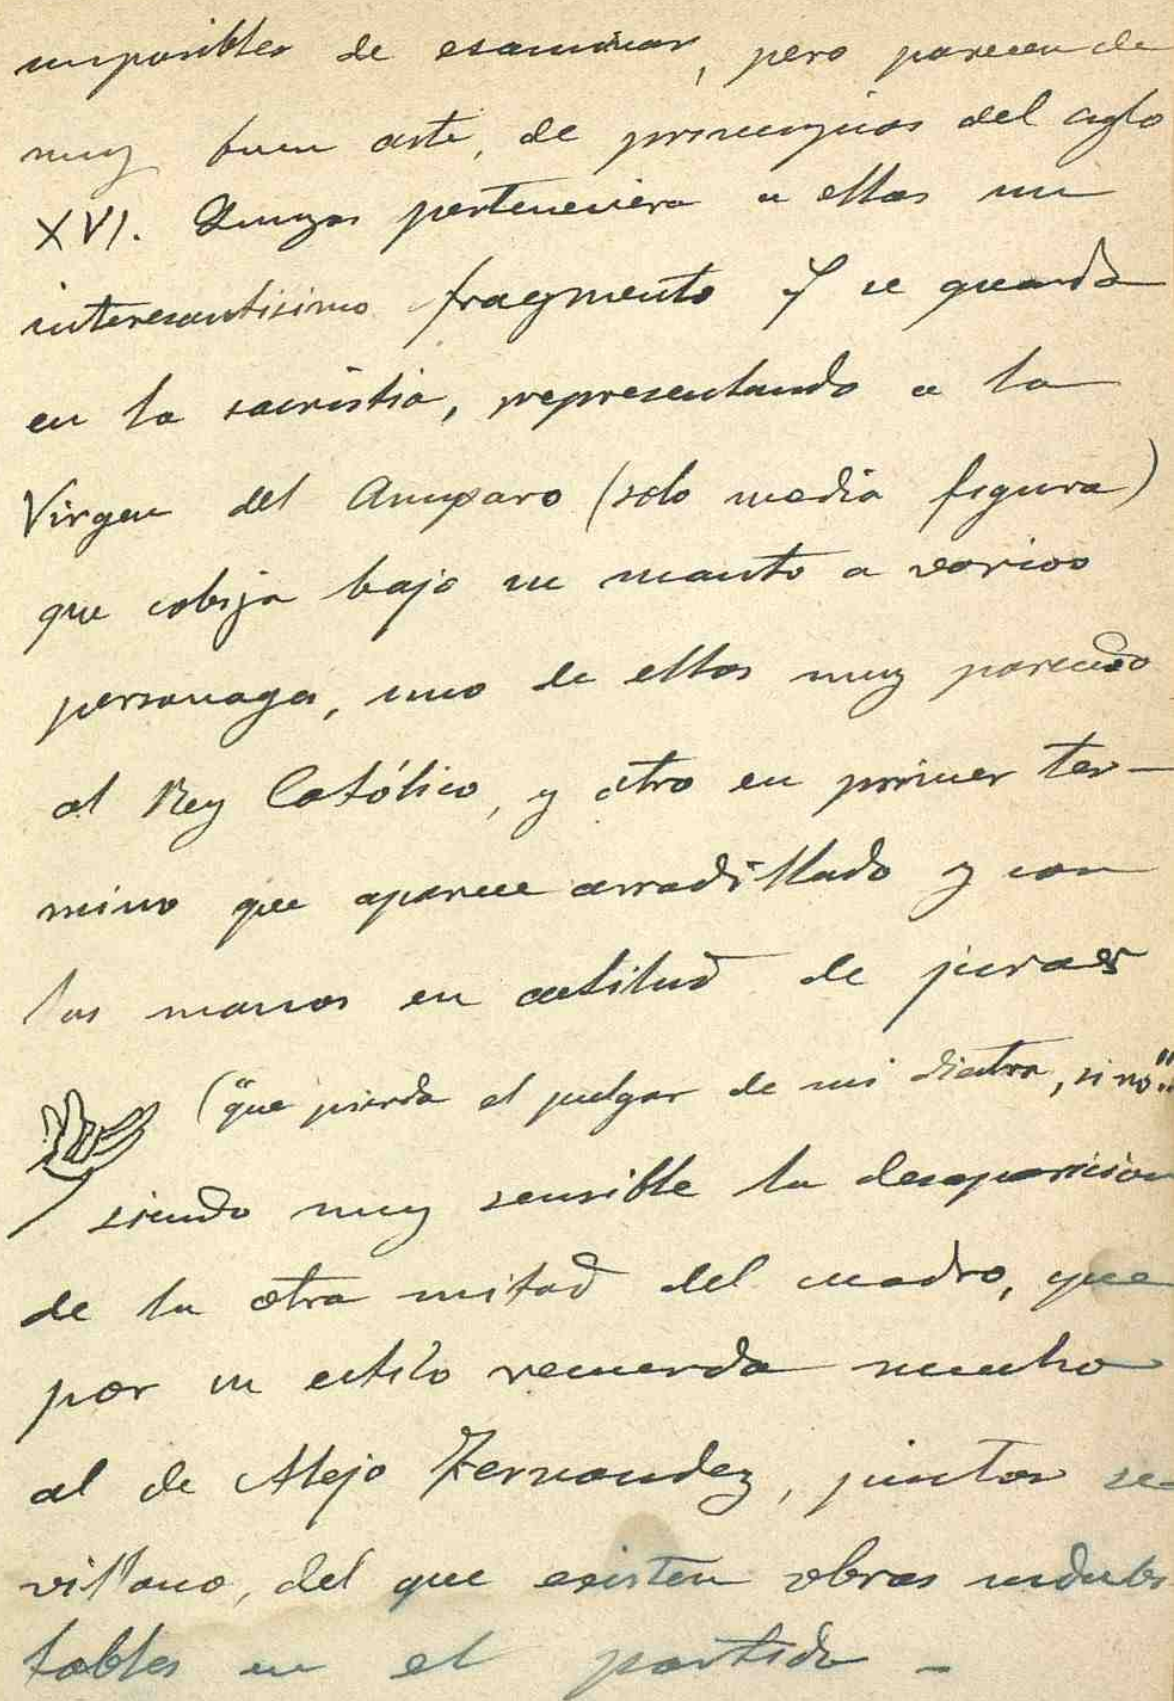 imposibles de esaminar, pero parecen de
muy buen arte, de principios del siglo
XVI. Quizas perteneciera a ellas un
interesantisimo fragmento q se guarda
en la sacristia, representando a la
Virgen del Amparo (solo media figura)
que cobija bajo su manto a varios
personages, uno de ellos muy parecido
al Rey Católico, y otro en primer ter-
mino que aparece arradillado y con
las manos en actitud de jurar
("que pierda el pulgar de mi diestra, si no"..
siendo muy sensible la desaparicion
de la otra mitad del cuadro, que
por su estilo recuerda mucho
al de Alejo Fernandez, pintor se-
villano, del que existen obras indubi
tables en el partido -